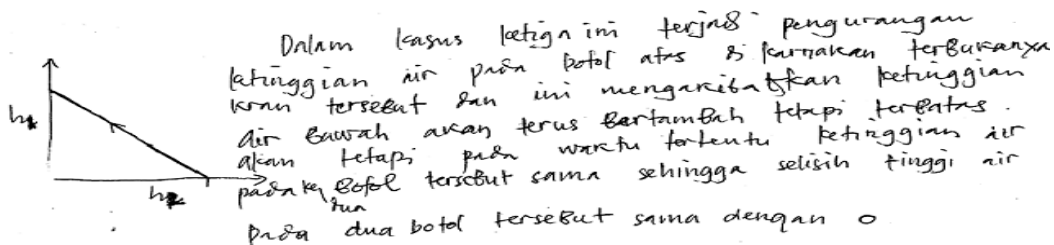 Dalam kasus ketiga ini terjadi pengurangan
ketinggian air pada botol atas dikarnakan terbukanya
kran tersebut dan ini mengakibatkan ketinggian
air bawah akan terus bertambah tetapi terbatas.
akan tetapi pada waktu tertentu ketinggian air
pada ke dua botol tersebut sama sehingga selisih tinggi air
pada dua botol tersebut sama dengan 0